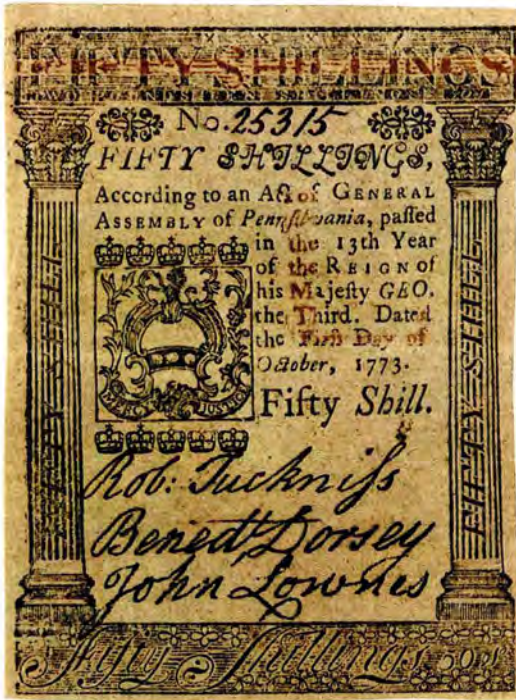 FIFTY SHILLINGS
No. 25315
FIFTY SHILLINGS,
According to an Act of GENERAL
ASSEMBLY of Pennſilvania, paſſed
in the 13th Year
of the REIGN of
his Majeſty GEO.
the Third. Dated
the Firſt Day of
October, 1773.
MERCY JUSTICE
Fifty Shill.
Rob: Tuckniſs
Bened.t Dorsey
John Lownes
FIFTY SHILL.
FIFTY SHILL.
Fifty Shillings. 50s.